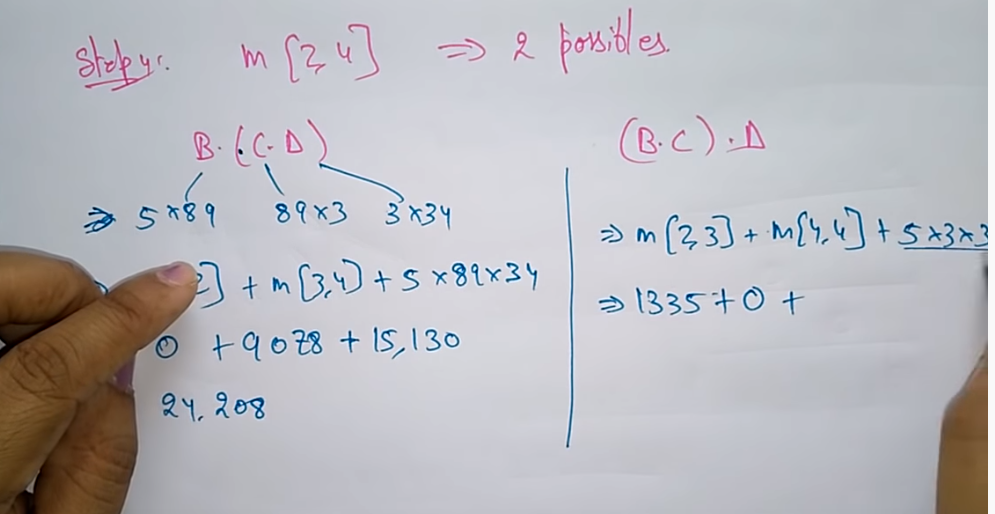 Step 4:
m [2,4] ⇒ 2 possibles.
B. (C. D)
⇒ 5 × 89 89 × 3 3 × 34
] + m [3,4) + 5 × 89 × 34
0 + 9078 + 15,130
24, 208
(B. C) . D
⇒ m [2,3] + m [4,4] + 5 × 3 × 3
⇒ 1335 + 0 +